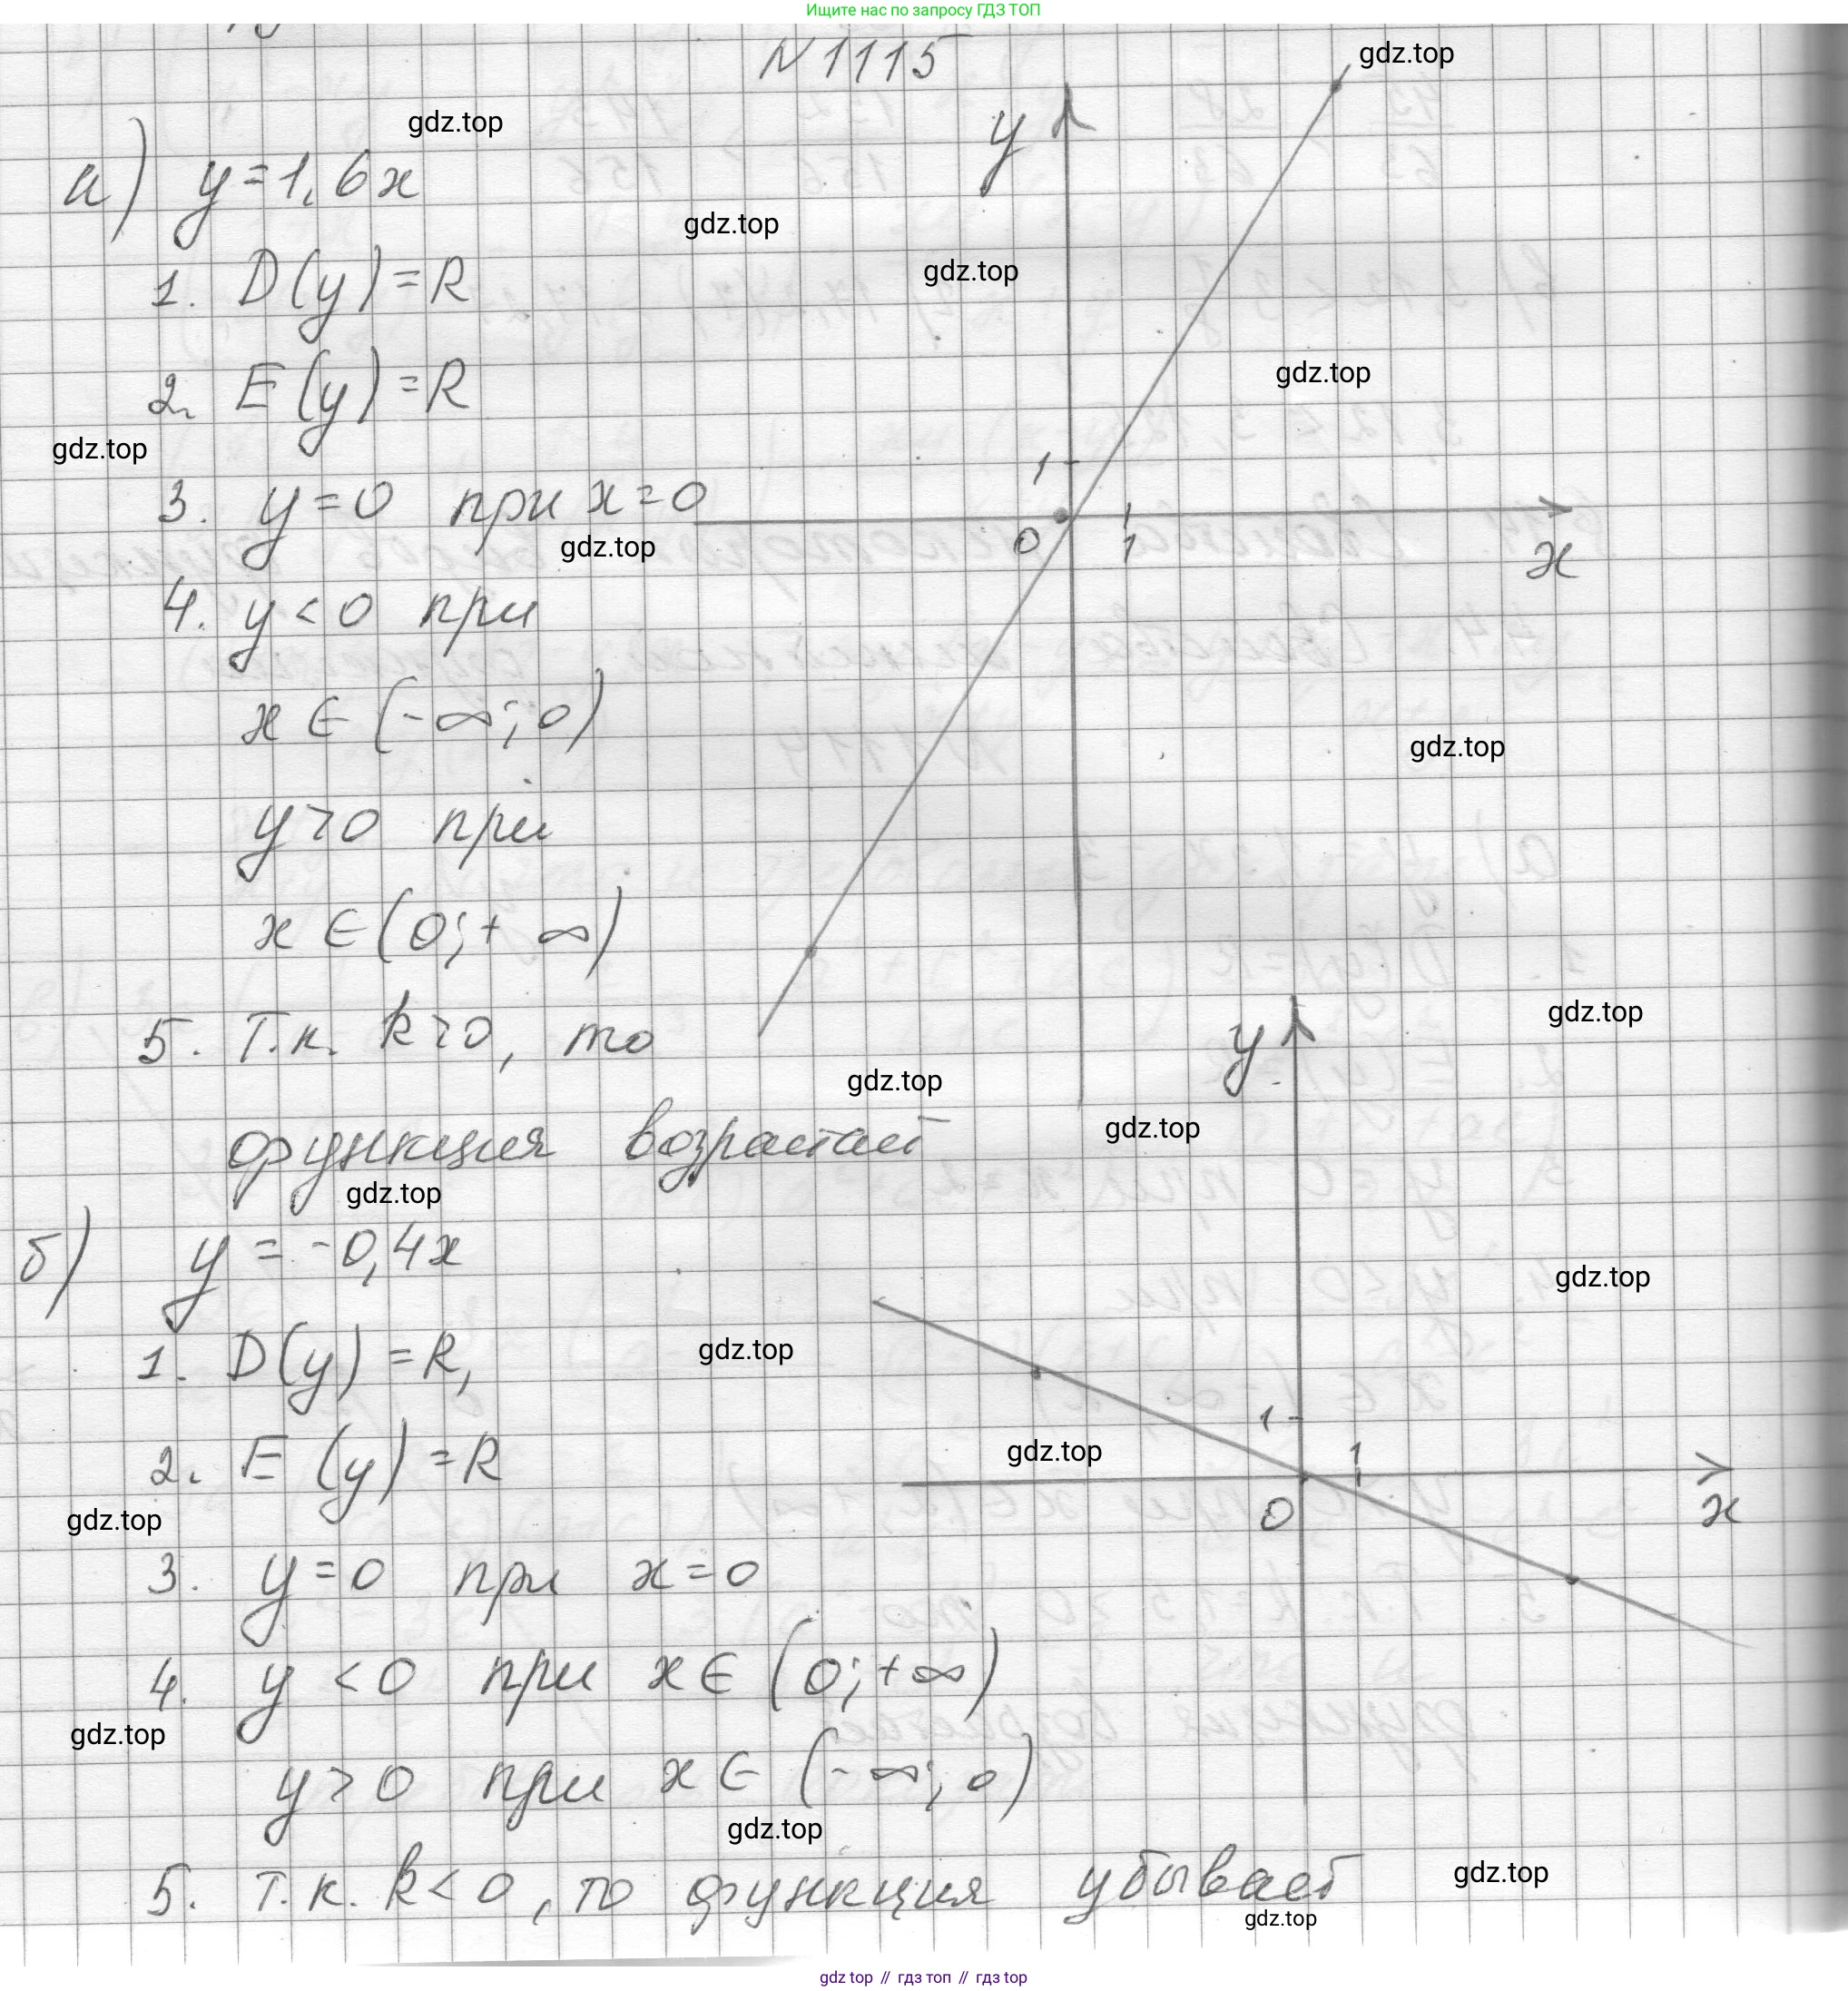 Ищите нас по запросу ГДЗ ТОП
N 1115
gdz.top
gdz.top
y
а) y=1,6x
gdz.top
gdz.top
1. D(y)=R
gdz.top
2. E(y)=R
gdz.top
1
3. y=0 при x=0
gdz.top
0 1
x
4. y<0 при
x∈(-∞;0)
gdz.top
y>0 при
x∈(0;+∞)
5. Т.к. k>0, то
gdz.top
y
gdz.top
gdz.top
функция возрастает
gdz.top
б) y=-0,4x
gdz.top
1. D(y)=R,
gdz.top
1
1
2. E(y)=R
gdz.top
gdz.top
0
x
3. y=0 при x=0
4. y<0 при x∈(0;+∞)
gdz.top
y>0 при x∈(-∞;0)
gdz.top
5. Т.к. k<0, то функция убывает
gdz.top
gdz.top
gdz top // гдз топ // гдз top